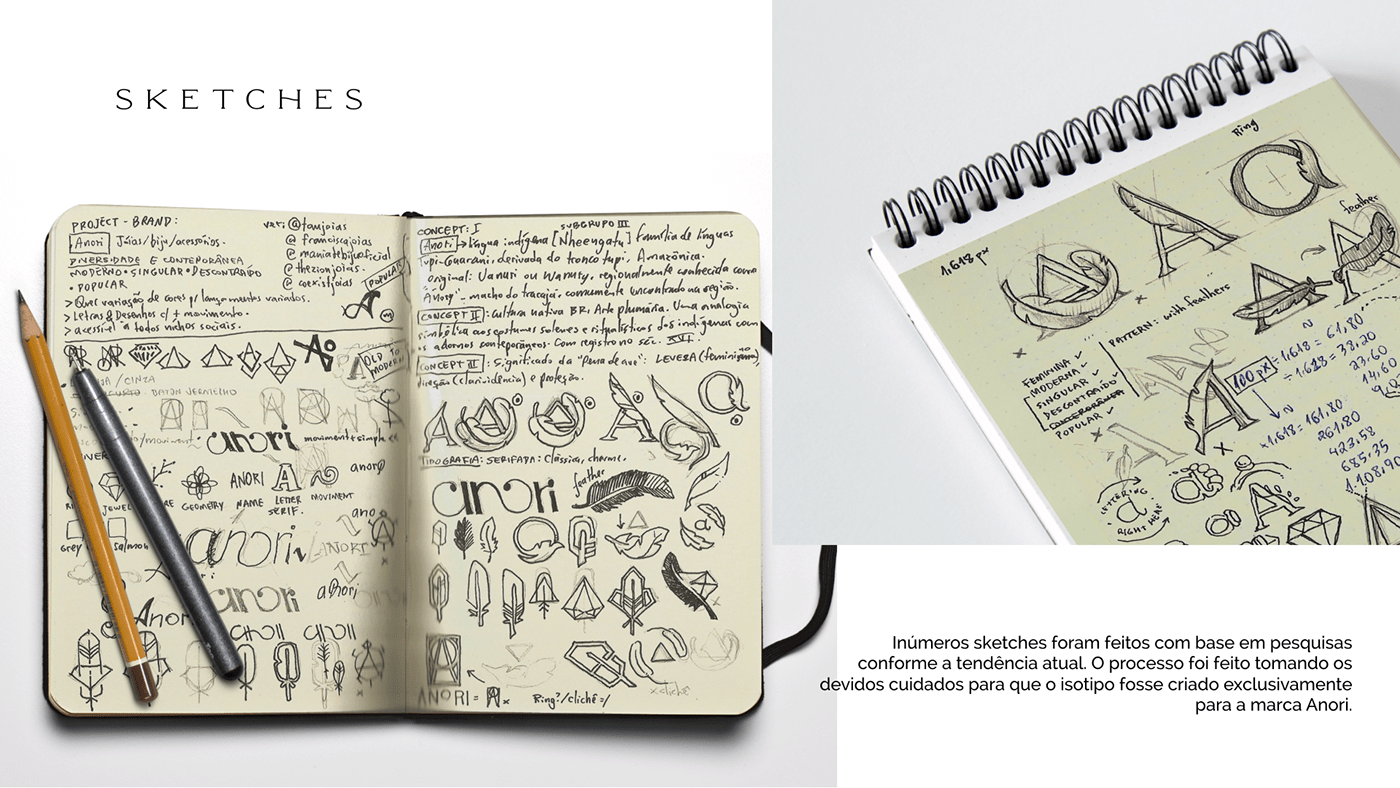 SKETCHES
PROJECT - BRAND:
Anori Jóias/biju/acessórios.
DIVERSIDADE E CONTEPORÂNEA
MODERNO • SINGULAR • DESCONTRAÍDO
• POPULAR
> Quer variação de cores p/ lançamentos variados.
> Letras & Desenhos c/ + movimento.
> acessível a todos nichos sociais.
ver: @tamjoias
@ franciscajoias
@ maniattebijuoficial
@ thezionjoias.
@ coexistjoias
POPULAR
OLD TO
MODERN
/CINZA
BATOM VERMELHO
anori movimento + simple
anory
JEWEL GEOMETRY NAME LETTER MOVIMENT
SERIF.
ANORI
ano
Grey salmon
anori ANORI
anori anori
Anori
CONCEPT: I SUBGRUPO III
Anori → língua indígena [Nheengatu] família de línguas
Tupi-Guarani, derivada do tronco tupi. Amazônica.
original: Uanuri ou Wanury, regionalmente conhecida como
"Anory" - macho do tracajá, comumente encontrado na região.
CONCEPT II: Cultura nativa BR: Arte plumária. Uma analogia
simbólica aos costumes solenes e ritualísticos dos indígenas com
os adornos contemporâneos. Com registro no séc. XVI.
CONCEPT III: Significado da "Pena de ave": LEVEZA (feminismo),
direção (clarividência) e proteção.
TIPOGRAFIA: SERIFADA: Clássica, charme.
anori feather
x clichê
ANORI = x Ring?/clichê =/
Ring
1.618 px
feather
PATTERN: with feathers
FEMININA ✓
MODERNA ✓
SINGULAR ✓
DESCONTRAÍDO ✓
CONTEPORÂNEA
POPULAR ✓
100 px
÷ 1.618 = 61,80
÷ 1.618 = 38,20
23,60
14,60
× 1.618 = 161,80
261,80
423,58
685,35
1.108,90
LETTERING
a
RIGHT HERE
Inúmeros sketches foram feitos com base em pesquisas
conforme a tendência atual. O processo foi feito tomando os
devidos cuidados para que o isotipo fosse criado exclusivamente
para a marca Anori.